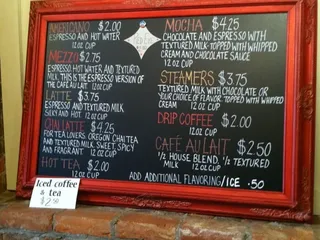 AMERICANO $2.00
ESPRESSO AND HOT WATER
12 OZ CUP
MEZZO $2.75
ESPRESSO HOT WATER AND TEXTURED
MILK, THIS IS THE ESPRESSO VERSION OF
THE CAFÉ AU LAIT 12 OZ CUP
LATTE $3.75
ESPRESSO AND TEXTURED MILK
SILKY AND HOT 12 OZ CUP
CHAI LATTE $4.25
FOR TEA LOVERS OREGON CHAI TEA
AND TEXTURED MILK SWEET SPICY
AND FRAGRANT 12 OZ CUP
HOT TEA $2.00
12 OZ CUP
MOCHA $4.25
CHOCOLATE AND ESPRESSO WITH
TEXTURED MILK TOPPED WITH WHIPPED
CREAM AND CHOCOLATE SAUCE
12 OZ CUP
STEAMERS $3.75
TEXTURED MILK WITH CHOCOLATE OR
YOUR CHOICE OF FLAVOR TOPPED WITH WHIPPED
CREAM 12 OZ CUP
DRIP COFFEE $2.00
12 OZ CUP
CAFÉ AU LAIT $2.50
1/2 HOUSE BLEND, 1/2 TEXTURED
MILK 12 OZ CUP
ADD ADDITIONAL FLAVORING/ICE .50
Iced coffee
& tea
$2.50